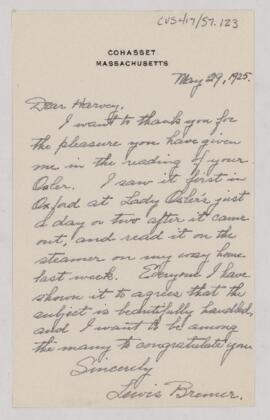 CUS417/57.123
COHASSET
MASSACHUSETTS
May 29, 1925.
Dear Harvey,
I want to thank you for
the pleasure you have given
me in the reading of your
Osler. I saw it first in
Oxford at Lady Osler's just
a day or two after it came
out, and read it on the
steamer on my way home
last week. Everyone I have
shown it to agrees that the
subject is beautifully handled,
and I want to be among
the many to congratulate you
Sincerely
Lewis Bremer.